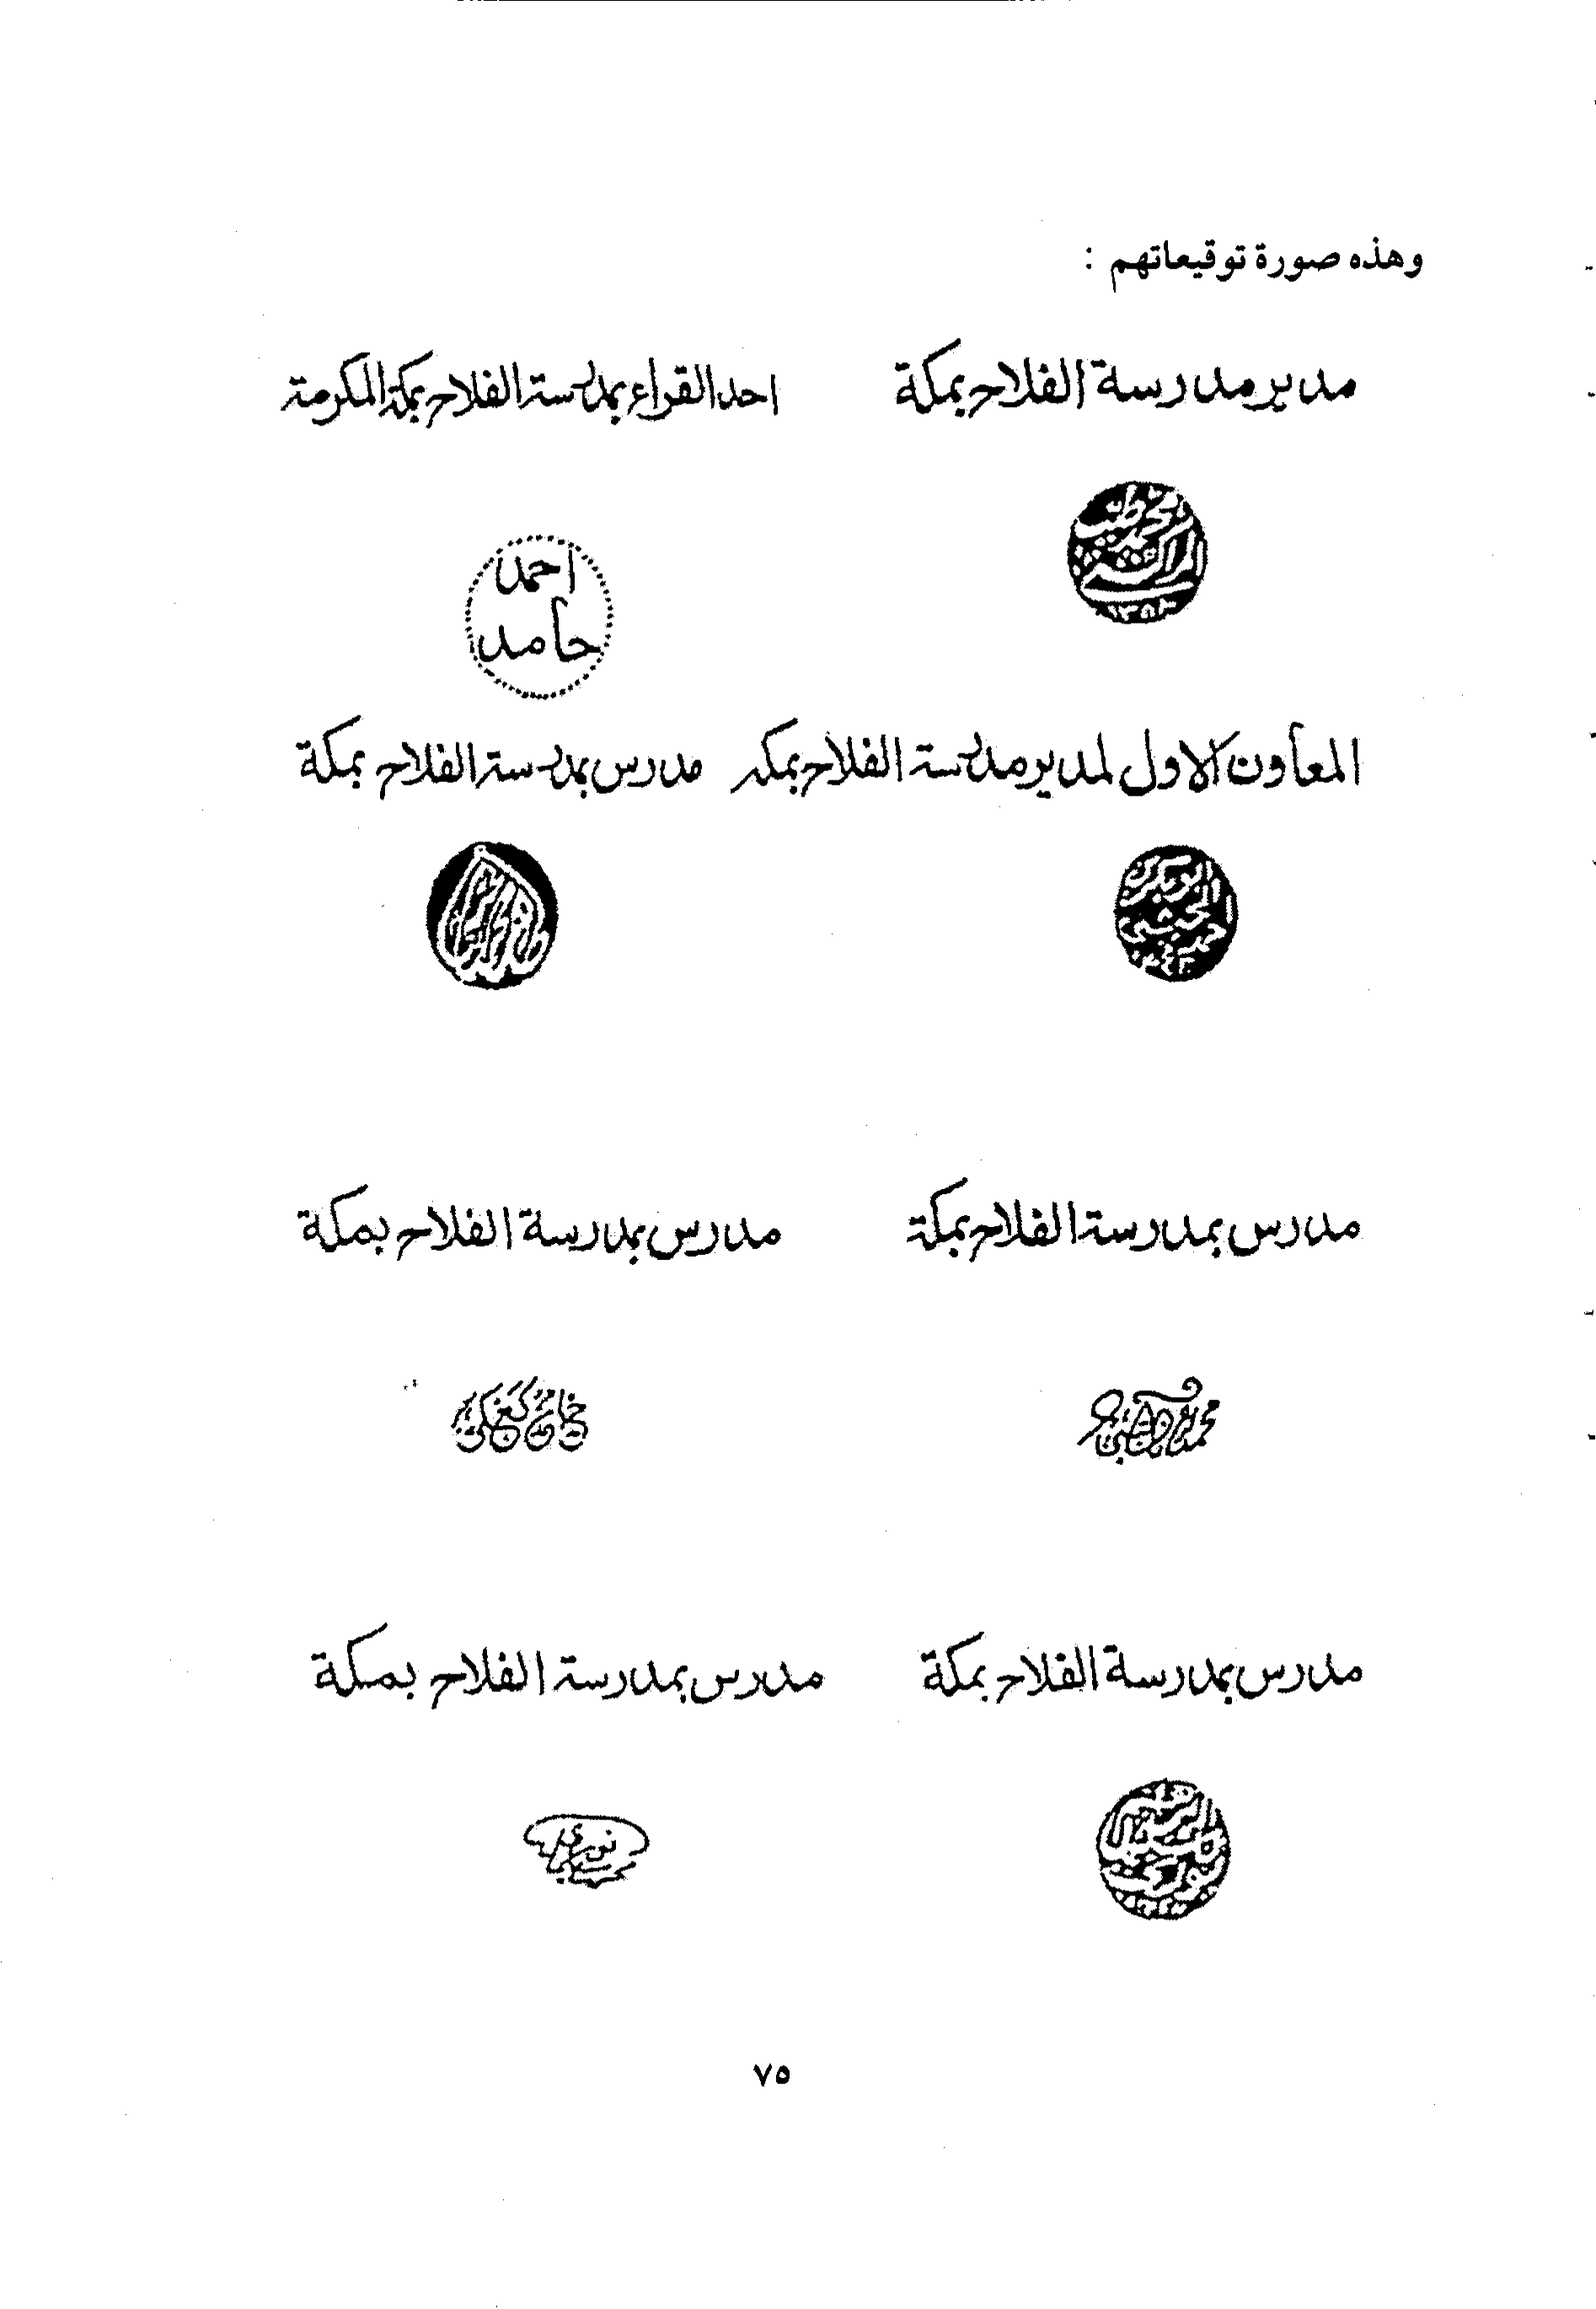 وهذه صورة توقيعاتهم :
مدير مدرسة الفلاح بمكة
احد القراء بمدرسة الفلاح بمكة المكرمة
محمد طيب
المراكشي
١٣٥٢
احمد
حامد
المعاون الاول لمدير مدرسة الفلاح بمكة
مدرس بمدرسة الفلاح بمكة
الحبشي
مدرس بمدرسة الفلاح بمكة
مدرس بمدرسة الفلاح بمكة
محمد
مدرس بمدرسة الفلاح بمكة
مدرس بمدرسة الفلاح بمكة
نوري
٧٥